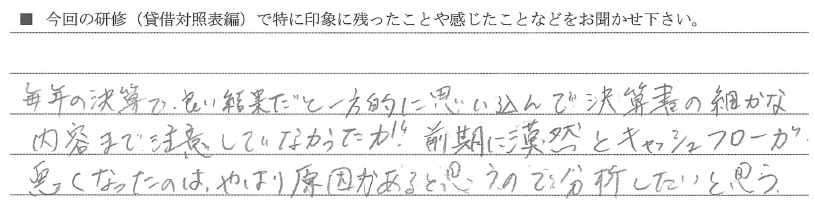 ■ 今回の研修（貸借対照表編）で特に印象に残ったことや感じたことなどをお聞かせ下さい。
毎年の決算で、良い結果だと一方的に思い込んで決算書の細かな
内容まで注意していなかったが、前期に漠然とキャッシュフローが
悪くなったのは、やはり原因があると思うので分析したいと思う。